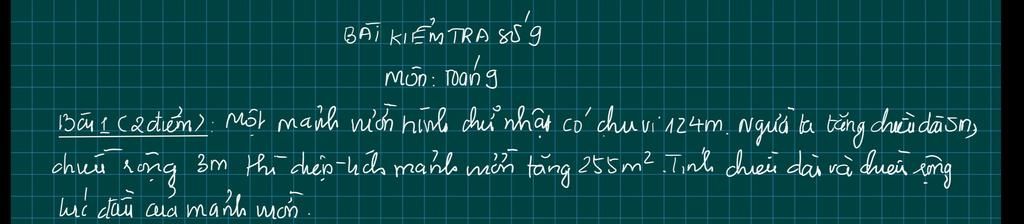 BÀI KIỂM TRA SỐ 9
Môn: Toán 9
Bài 1 (2 điểm): Một mảnh vườn hình chữ nhật có chu vi 124m. Người ta tăng chiều dài 5m,
chiều rộng 3m thì diện tích mảnh vườn tăng 255m². Tính chiều dài và chiều rộng
lúc đầu của mảnh vườn.